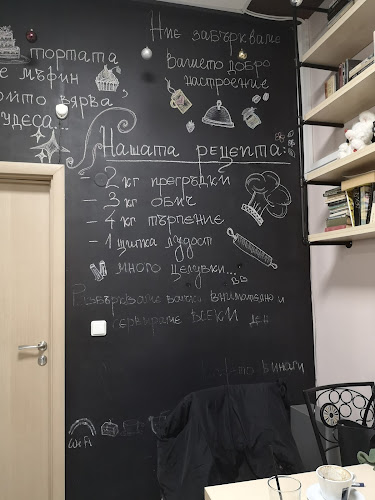 тортата
е мъфин
който вярва
чудеса...
Ние забъркваме
Вашето добро
настроение
Нашата рецепта:
- 2 кг прегръдки
- 3 кг обич
- 4 кг търпение
- 1 щипка лудост
много целувки...
Разбъркваме всичко внимателно и
сервираме ВСЕКИ ДЕН
винаги
WiFi